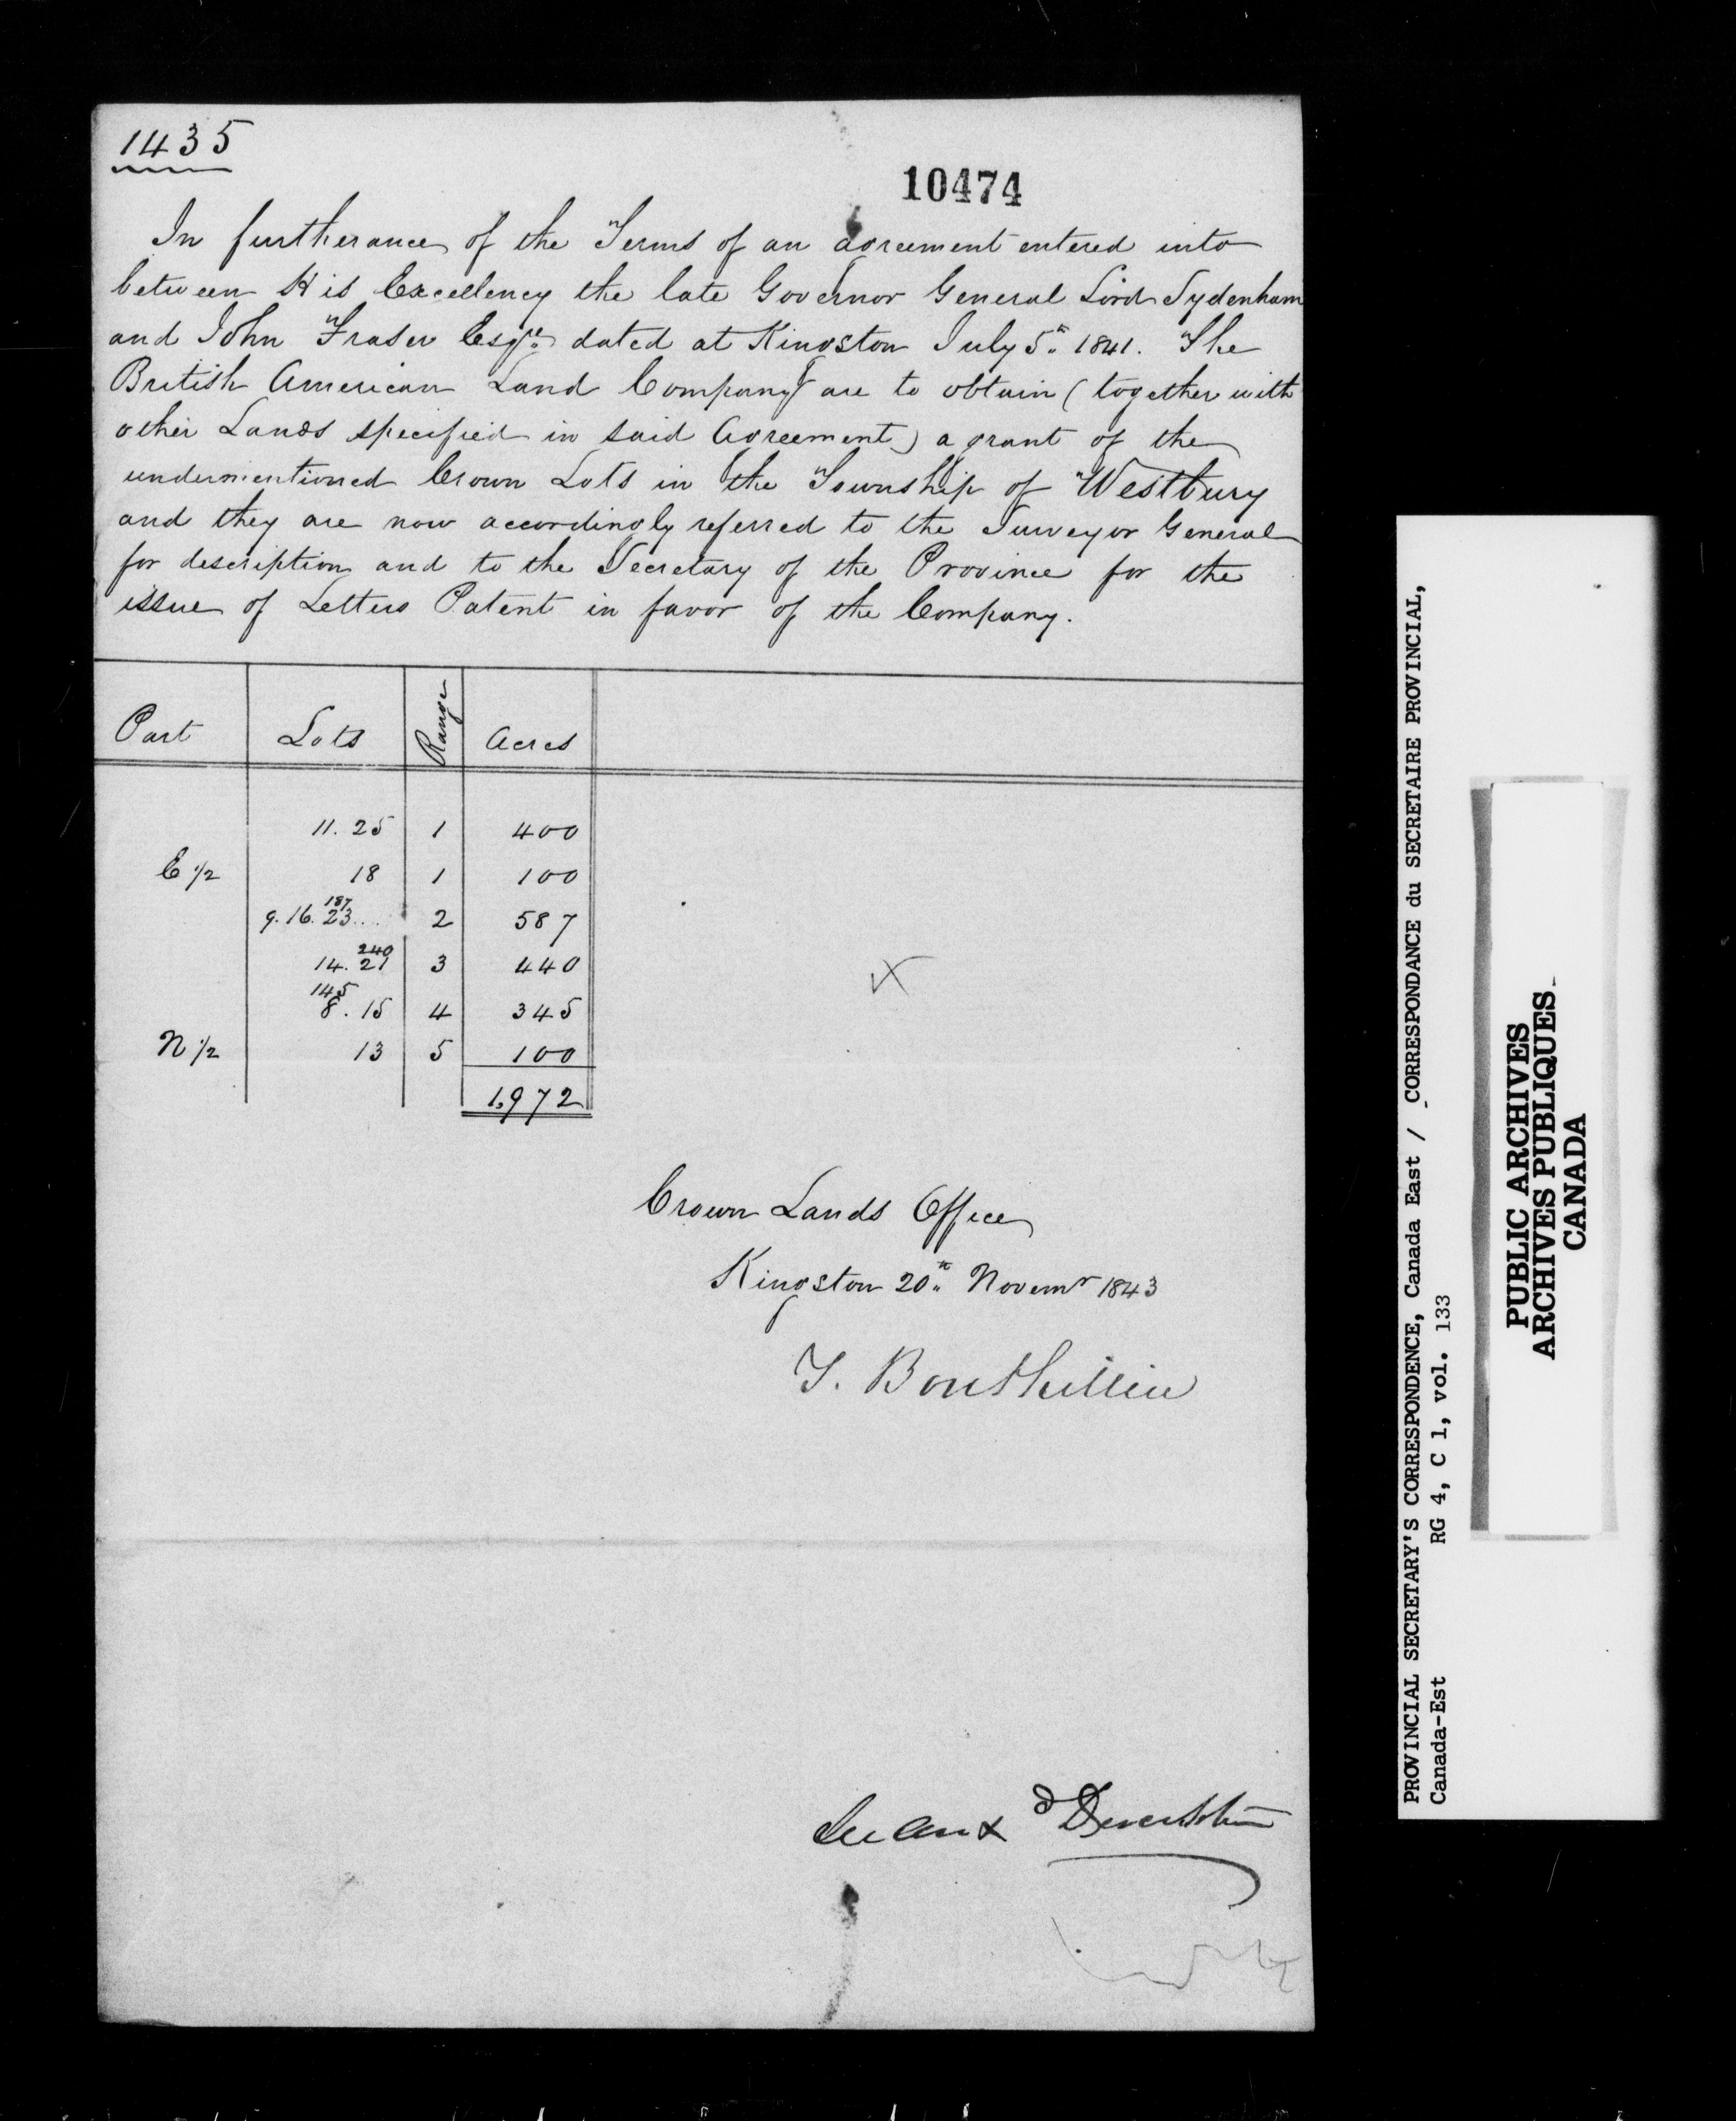 1435
10474
In furtherance of the Terms of an agreement entered into
between His Excellency the late Governor General Lord Sydenham
and John Fraser Esqre dated at Kingston July 5th 1841. The
British American Land Company are to obtain (together with
other Lands specified in said Agreement) a grant of the
undermentioned Crown Lots in the Township of Westbury
and they are now accordingly referred to the Surveyor General
for description and to the Secretary of the Province for the
issue of Letters Patent in favor of the Company.
Part Lots Range Acres
11. 25 1 400
E 1/2 18 1 100
187
9. 16. 23... 2 587
240
14. 21 3 440
145
8. 15 4 345
N 1/2 13 5 100
1,972
Crown Lands Office
Kingston 20th Novemr 1843
T. Bouthillier
PROVINCIAL SECRETARY'S CORRESPONDENCE, Canada East / CORRESPONDANCE du SECRETAIRE PROVINCIAL,
Canada-Est RG 4, C 1, vol. 133
PUBLIC ARCHIVES
ARCHIVES PUBLIQUES
CANADA